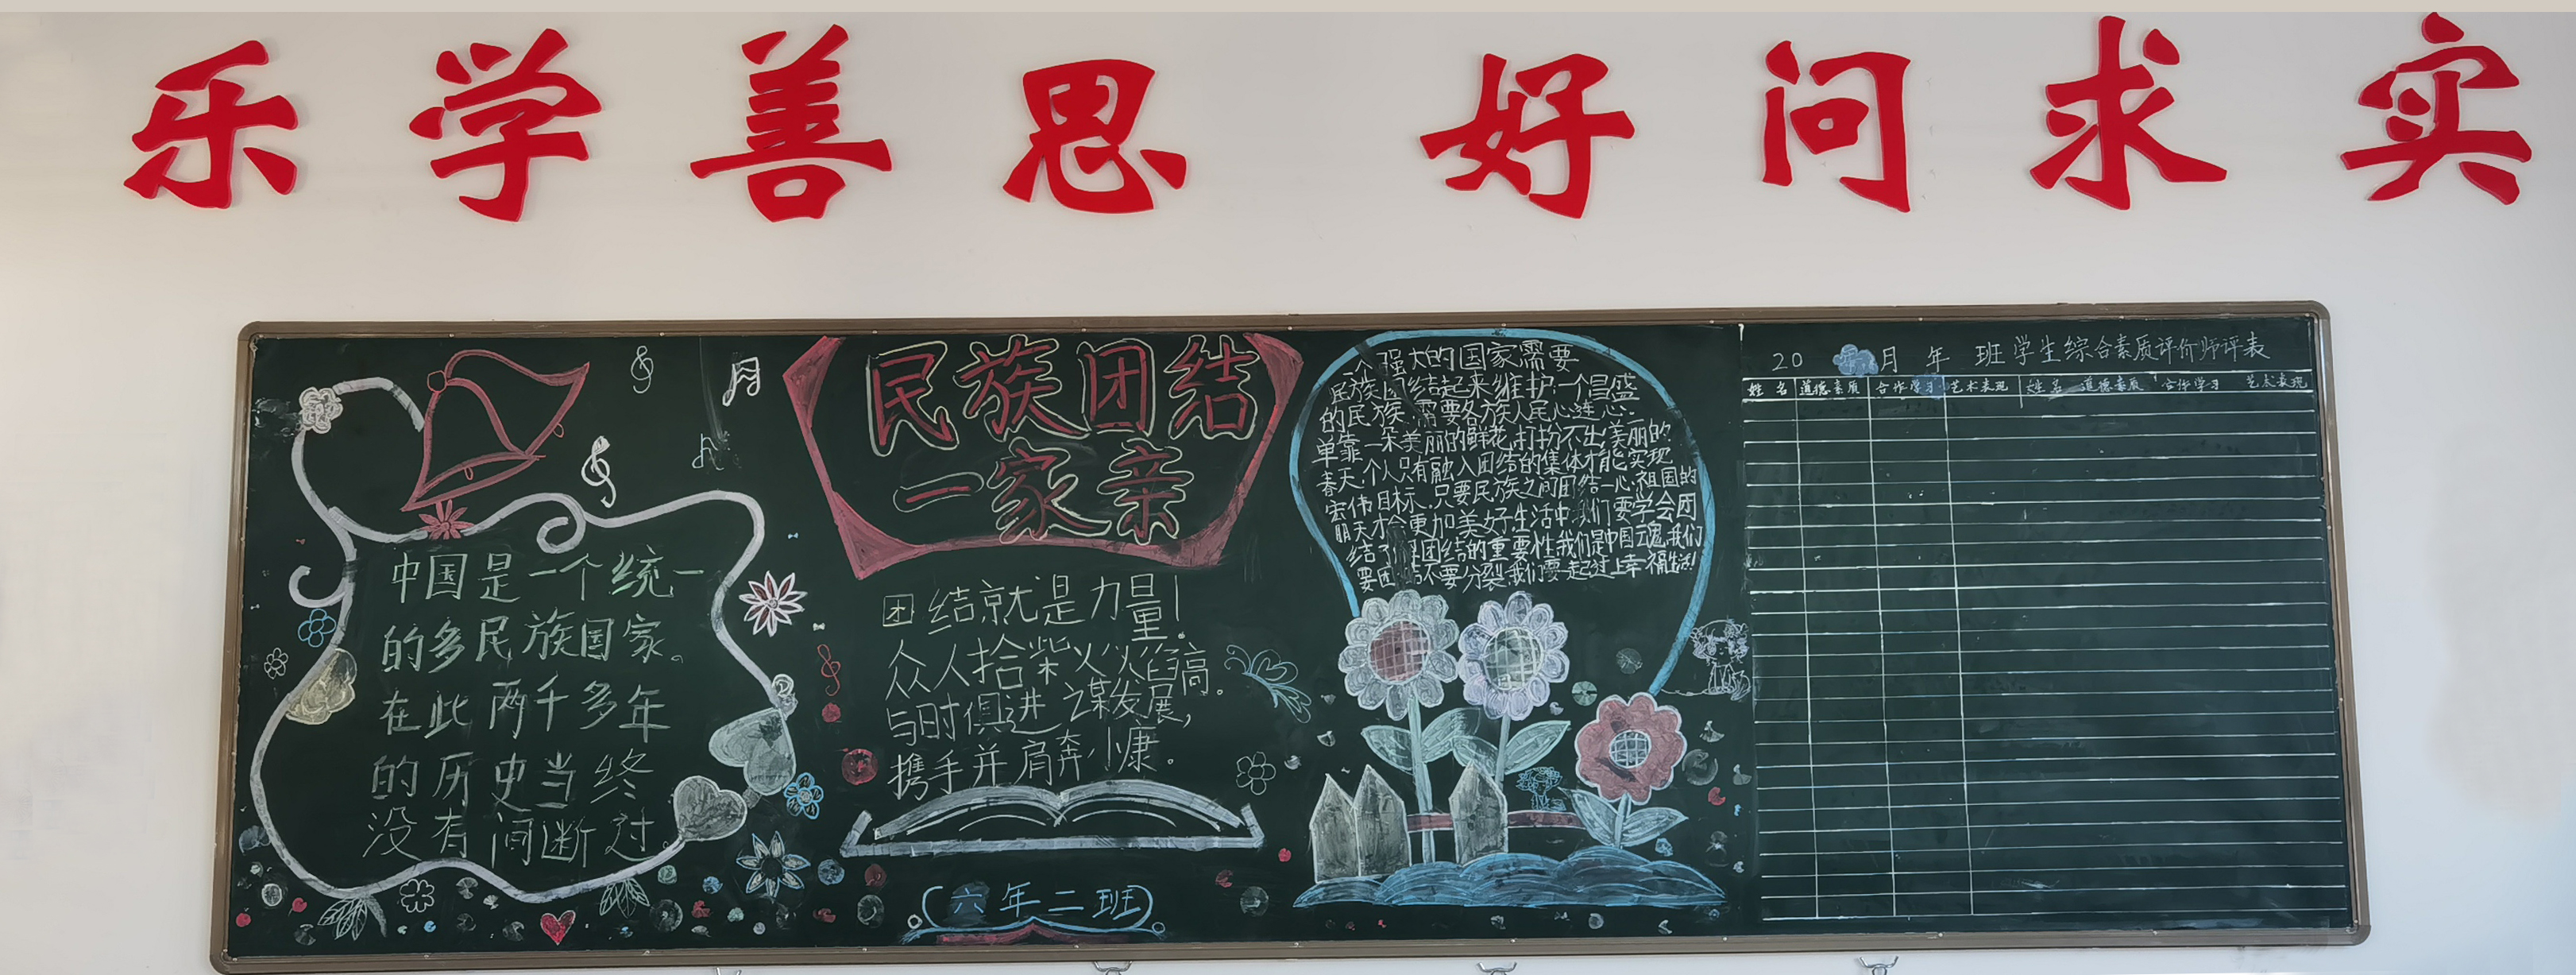 乐学善思 好问求实
民族团结
一家亲
中国是一个统一
的多民族国家。
在此两千多年
的历史当终
没有间断过。
团结就是力量!
众人拾柴火焰高。
与时俱进之谋发展,
携手并肩奔小康。
六年二班
个强大的国家需要
民族团结起来,维护一个昌盛
的民族,需要各族人民心连心.
单靠一朵美丽的鲜花,打扮不出美丽的
春天.个人只有融入团结的集体才能实现
宏伟目标.只要民族之间团结一心,祖国的
明天才会更加美好.生活中,我们要学会团
结了团结的重要性,我们是中国魂,我们
要团结不要分裂,我们要一起过上幸福生活!
20 月 年 班学生综合素质评价师评表
姓名 道德素质 合作学习 艺术表现 姓名 道德素质 合作学习 艺术表现